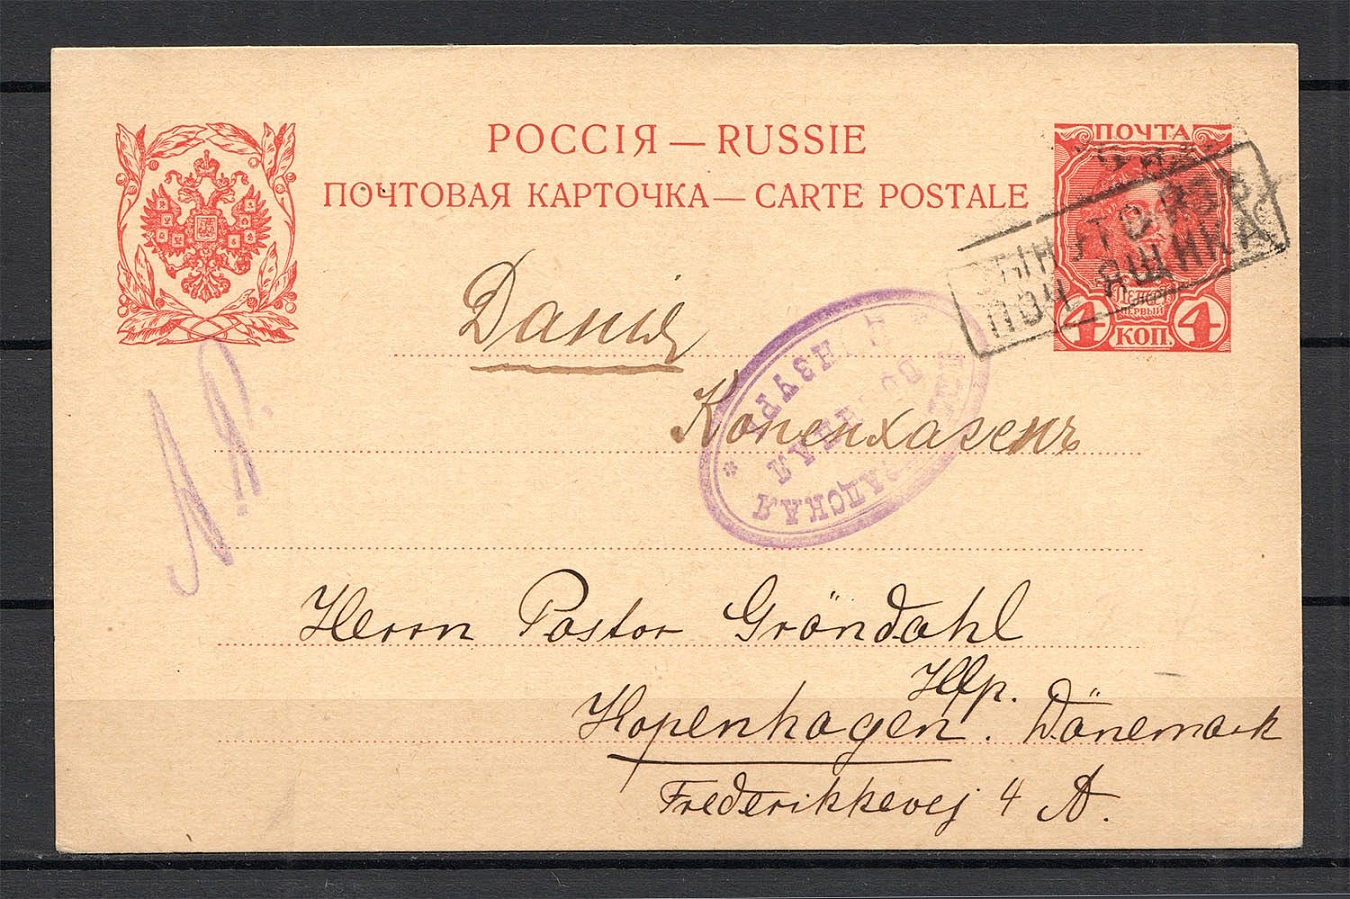 РОССІЯ — RUSSIE
ПОЧТОВАЯ КАРТОЧКА — CARTE POSTALE
ПОЧТА
4 КОП. 4
ВЫНУТО ИЗЪ
ПОЧ. ЯЩИКА
Данія
Копенхагенъ
ВОЕННАЯ
Herrn Pastor Gröndahl
Hlp.
Kopenhagen. Dänemark
Frederikkevej 4 A.